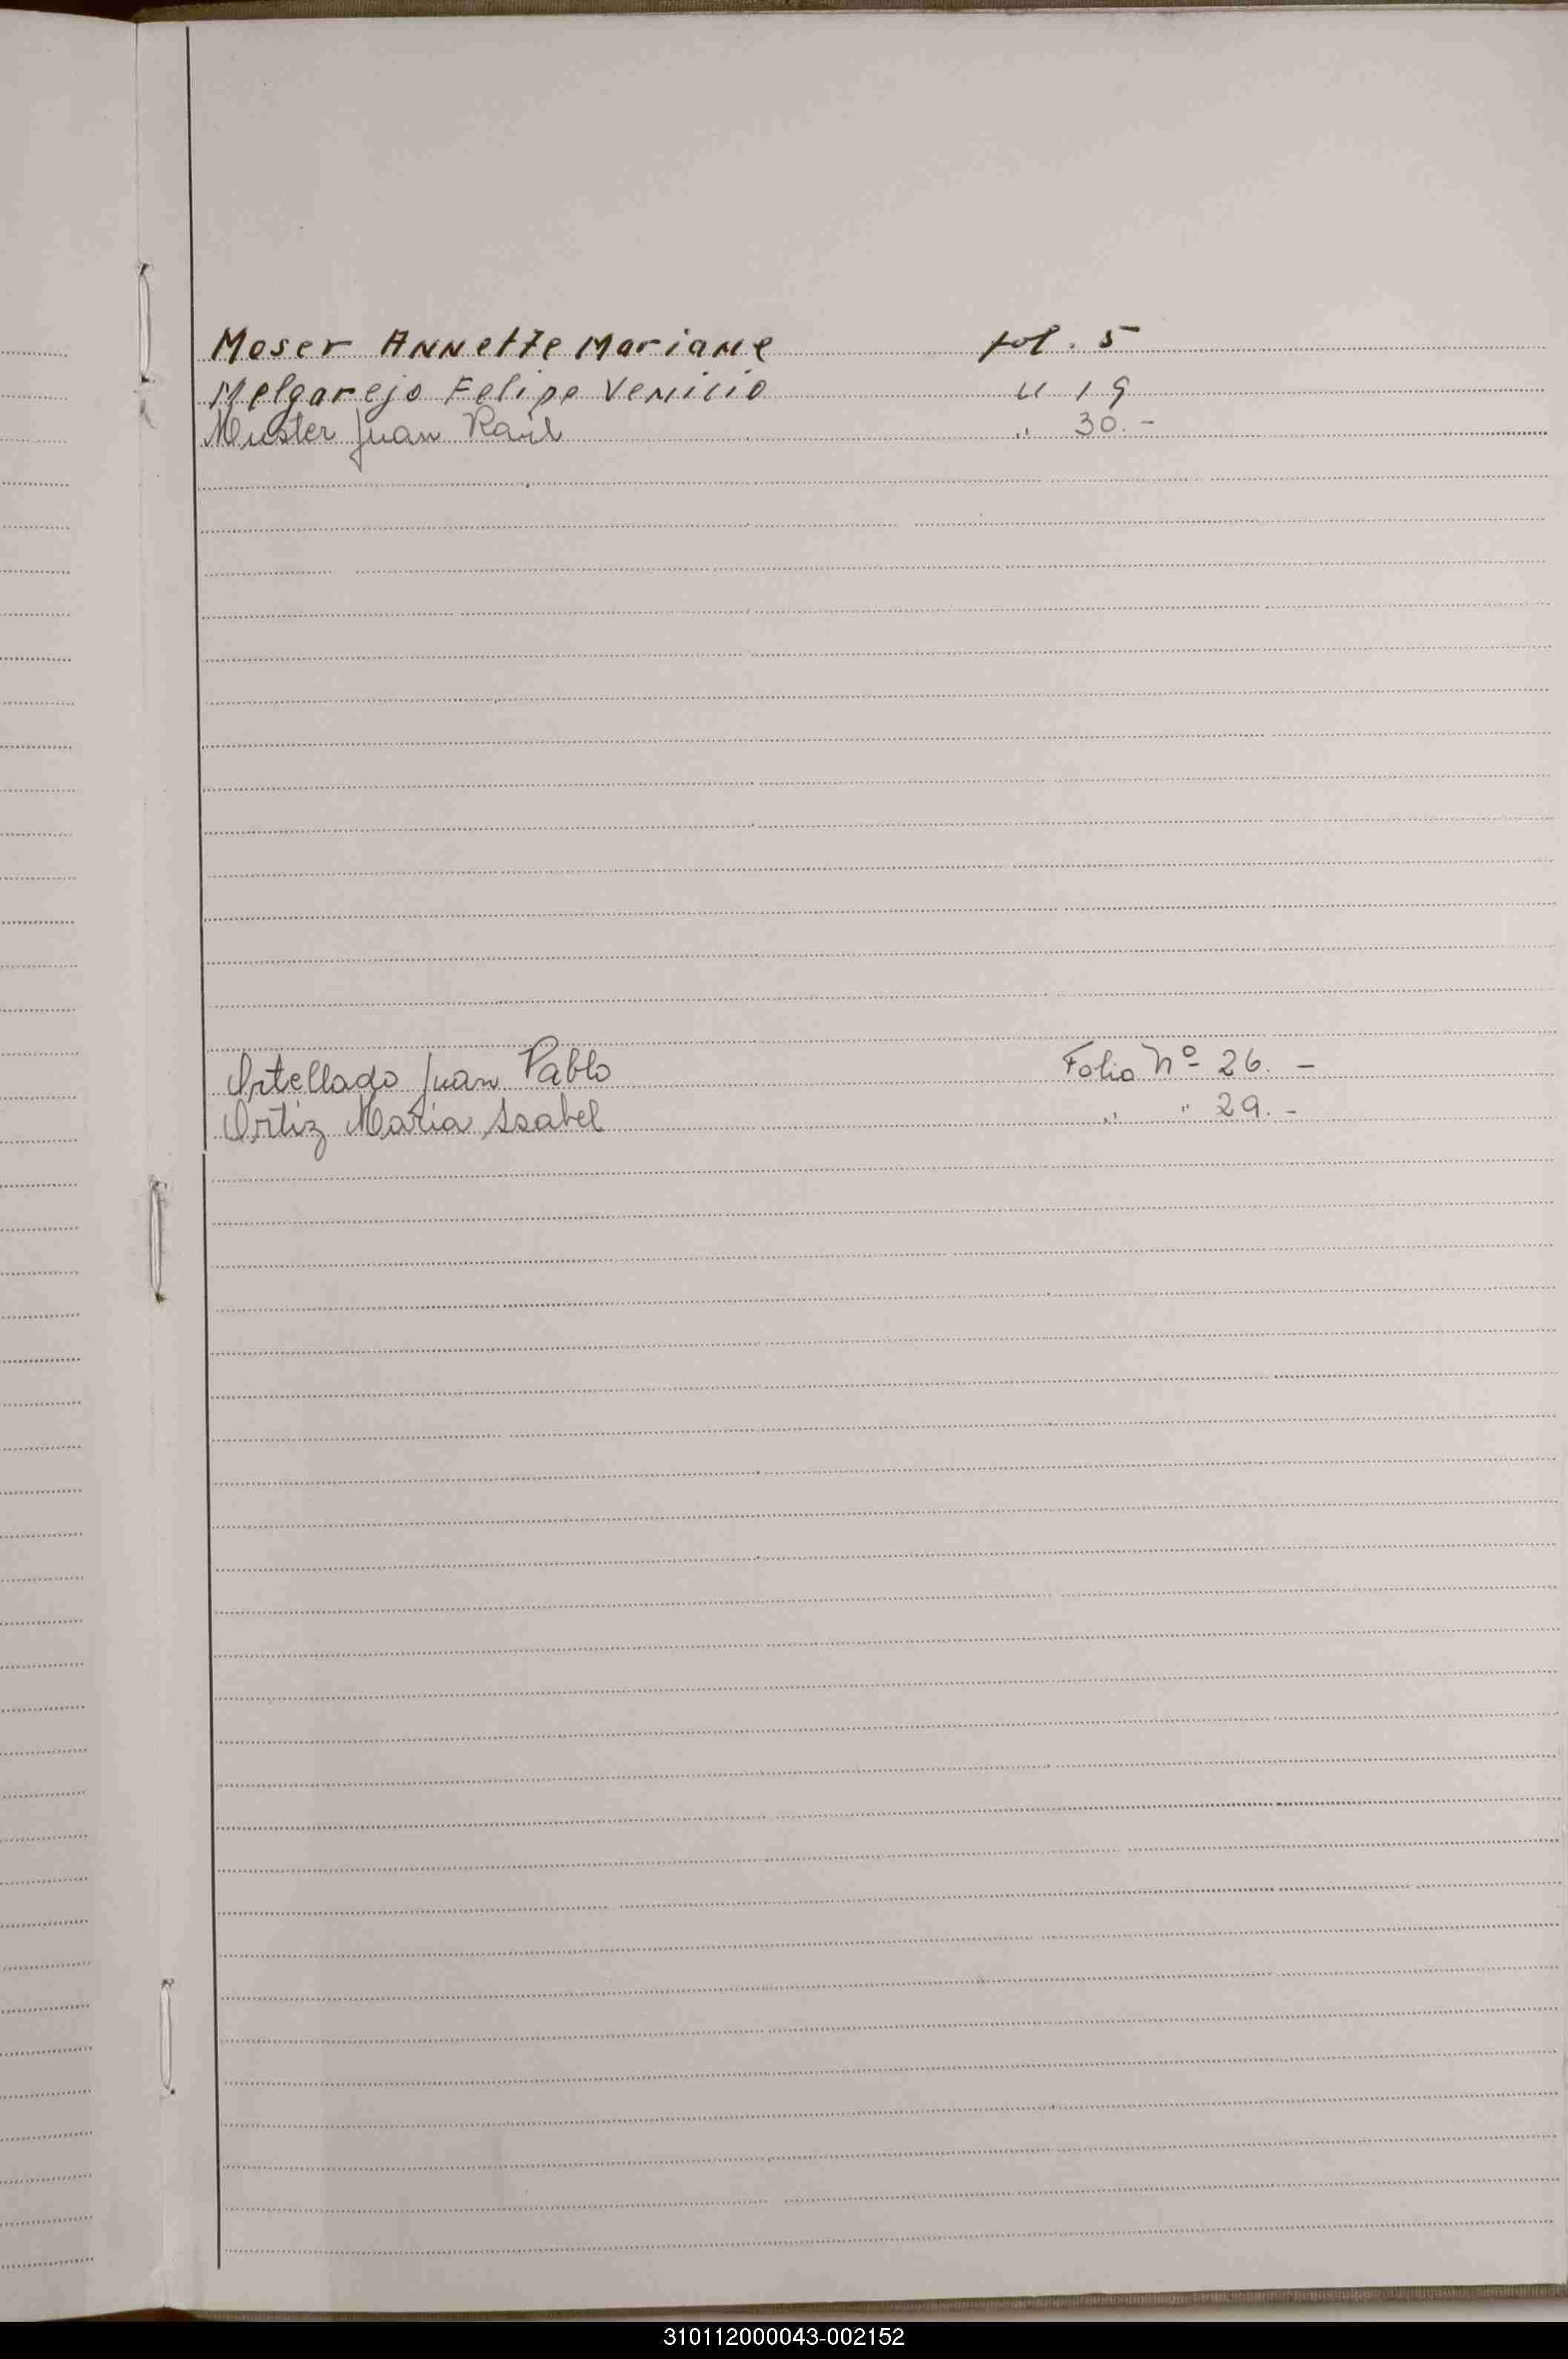 Moser Annette Mariane fol. 5
Melgarejo Felipe Venicio " 19
Muster Juan Raúl " 30.-
Ortellado Juan Pablo Folio Nº 26.-
Ortiz Maria Isabel " " 29.-
310112000043-002152